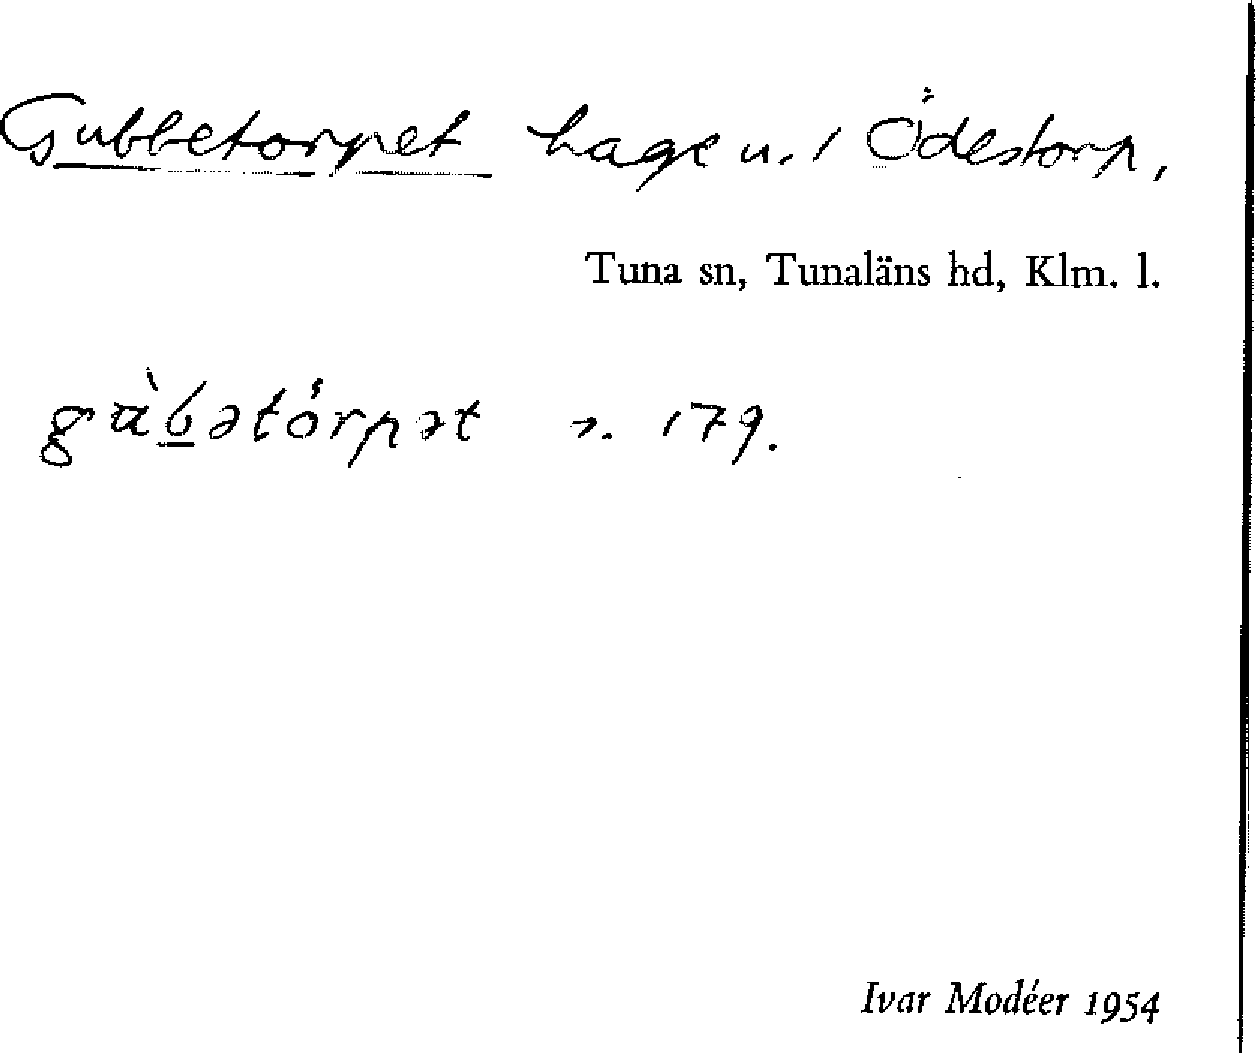 Gubbetorpet hage u. / Ödestorp,
Tuna sn, Tunaläns hd, Klm. l.
gu̇̀bətȯ́rpət s. 179.
Ivar Modéer 1954